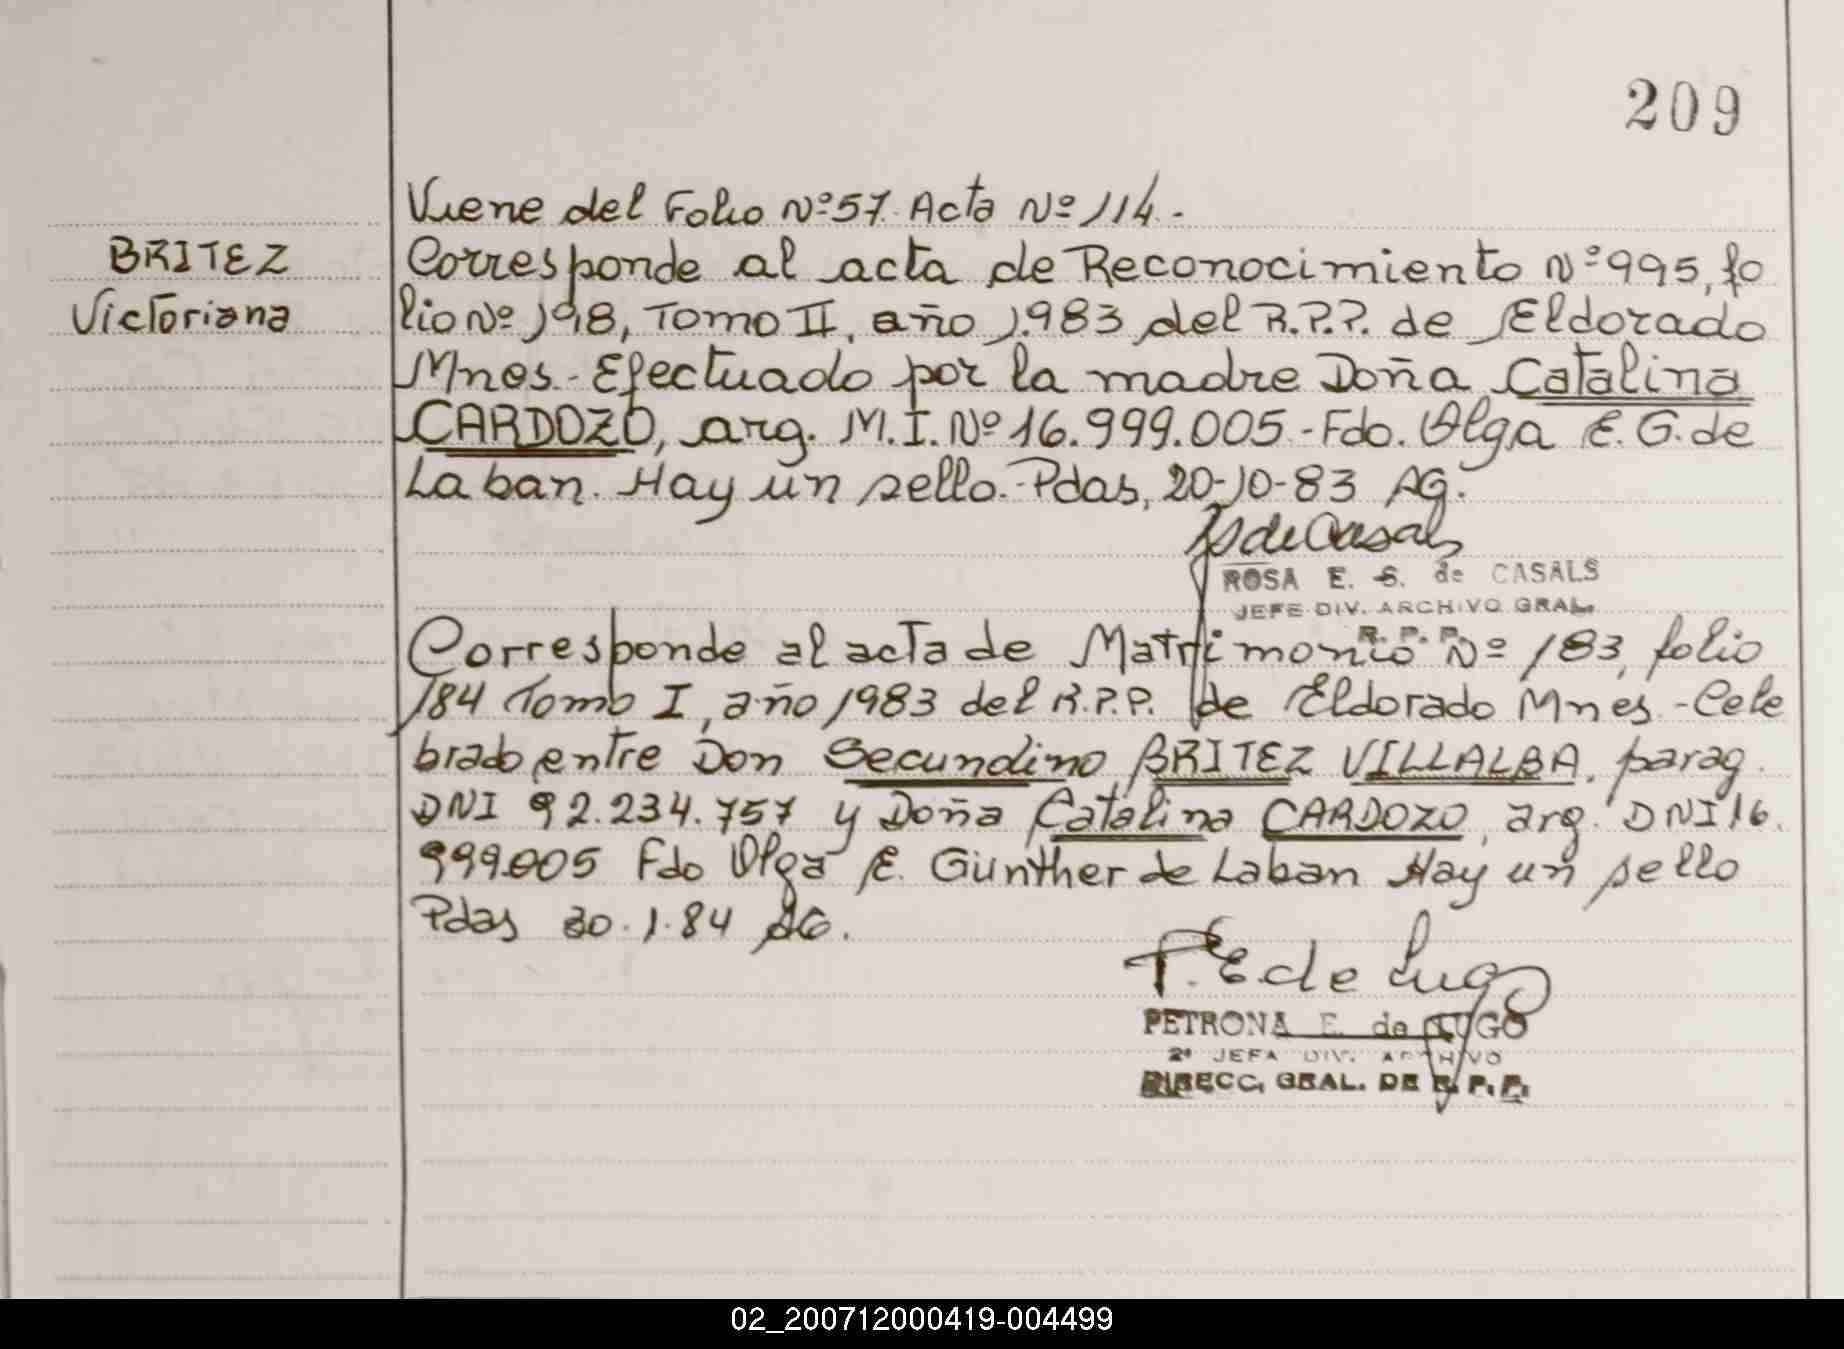 209
Viene del Folio Nº57. Acta Nº 114.-
BRITEZ
Victoriana
Corresponde al acta de Reconocimiento Nº995, fo
lio Nº 198, Tomo II, año 1.983 del R.P.P. de Eldorado
Mnes - Efectuado por la madre Doña Catalina
CARDOZO, arg. M.I. Nº 16.999.005.- Fdo. Olga E. G. de
Laban. Hay un sello.- Pdas, 20-10-83 AG.
ROSA E. S. de CASALS
JEFE DIV. ARCHIVO GRAL.
R. P. P.
Corresponde al acta de Matrimonio Nº 183, folio
184 Tomo I, año 1983 del R.P.P. de Eldorado Mnes.- Cele
brado entre Don Secundino BRITEZ VILLALBA, parag.
DNI 92.234.757 y Doña Catalina CARDOZO, arg. DNI 16.
999.005 Fdo Olga E. Günther de Laban Hay un sello
Pdas 30.1.84
P. E. de Lugo
PETRONA E. de LUGO
2ª JEFA DIV. ARCHIVO
DIRECC. GRAL. DE R. P. P.
02_200712000419-004499